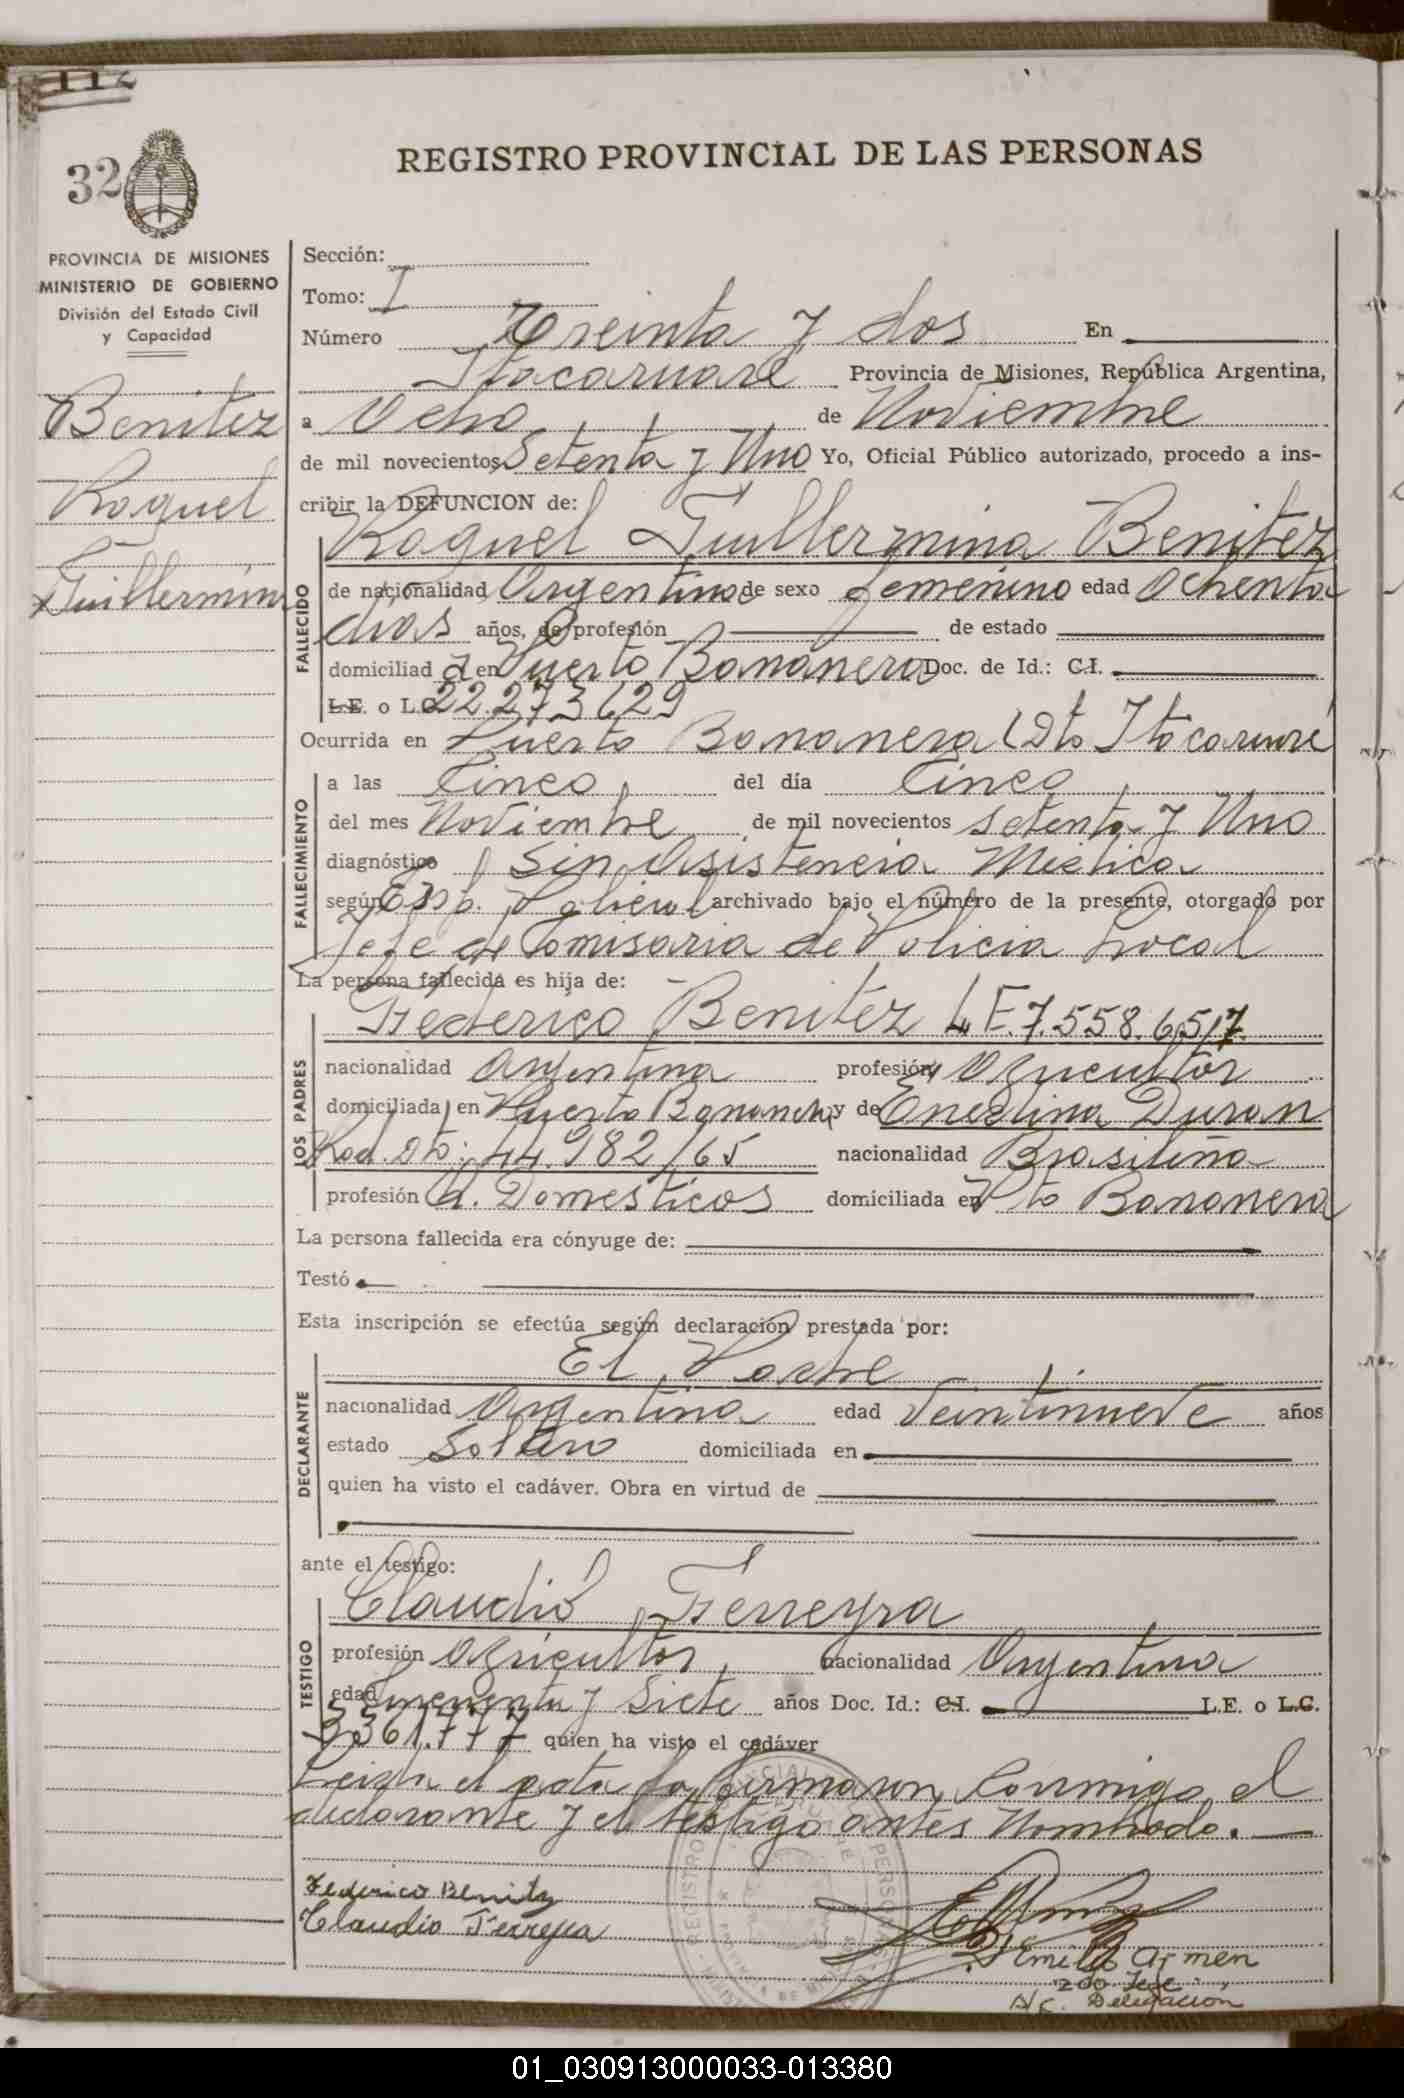 112
32
REGISTRO PROVINCIAL DE LAS PERSONAS
PROVINCIA DE MISIONES
MINISTERIO DE GOBIERNO
División del Estado Civil
y Capacidad
Benitez
Raquel
Guillermina
Sección:
Tomo: I
Número Treinta y dos En
Itacaruare Provincia de Misiones, República Argentina,
a Ocho de Noviembre
de mil novecientos Setenta y Uno Yo, Oficial Público autorizado, procedo a ins-
cribir la DEFUNCION de:
Raquel Guillermina Benitez
FALLECIDO
de nacionalidad Argentina de sexo femenino edad Ochenta
días años, de profesión de estado
domiciliad a en Puerto Bananera Doc. de Id.: C.I.
L.E. o L.C. 22.273.629
Ocurrida en Puerto Bananera (Dto Itacaruaré
FALLECIMIENTO
a las Cinco del día Cinco
del mes Noviembre de mil novecientos setenta y Uno
diagnóstico Sin Asistencia Medica
según Exp. Policial archivado bajo el número de la presente, otorgado por
Jefe de Comisaria de Policia Local
La persona fallecida es hija de:
LOS PADRES
Federico Benitez L.E. 7.558.657
nacionalidad Argentina profesión Agricultor
domiciliada en Puerto Bananera y de Enedina Duran
Rad. Dto: 44.982/65 nacionalidad Brasileña
profesión Q. Domesticos domiciliada en Pto Bananera
La persona fallecida era cónyuge de:
Testó
Esta inscripción se efectúa según declaración prestada por:
DECLARANTE
El Padre
nacionalidad Argentina edad Veintinueve años
estado Soltero domiciliada en
quien ha visto el cadáver. Obra en virtud de
ante el testigo:
TESTIGO
Claudio Ferreyra
profesión Agricultor nacionalidad Argentina
edad Cincuenta y Siete años Doc. Id.: C.I. L.E. o L.C.
3361.777 quien ha visto el cadáver
Leida el acta la firmaron Conmigo el
declarante y el testigo antes Nombrado.
Federico Benitz
Claudio Ferreyra
Emilio Armen
2do. Jefe
A/C. Delegación
01_030913000033-013380